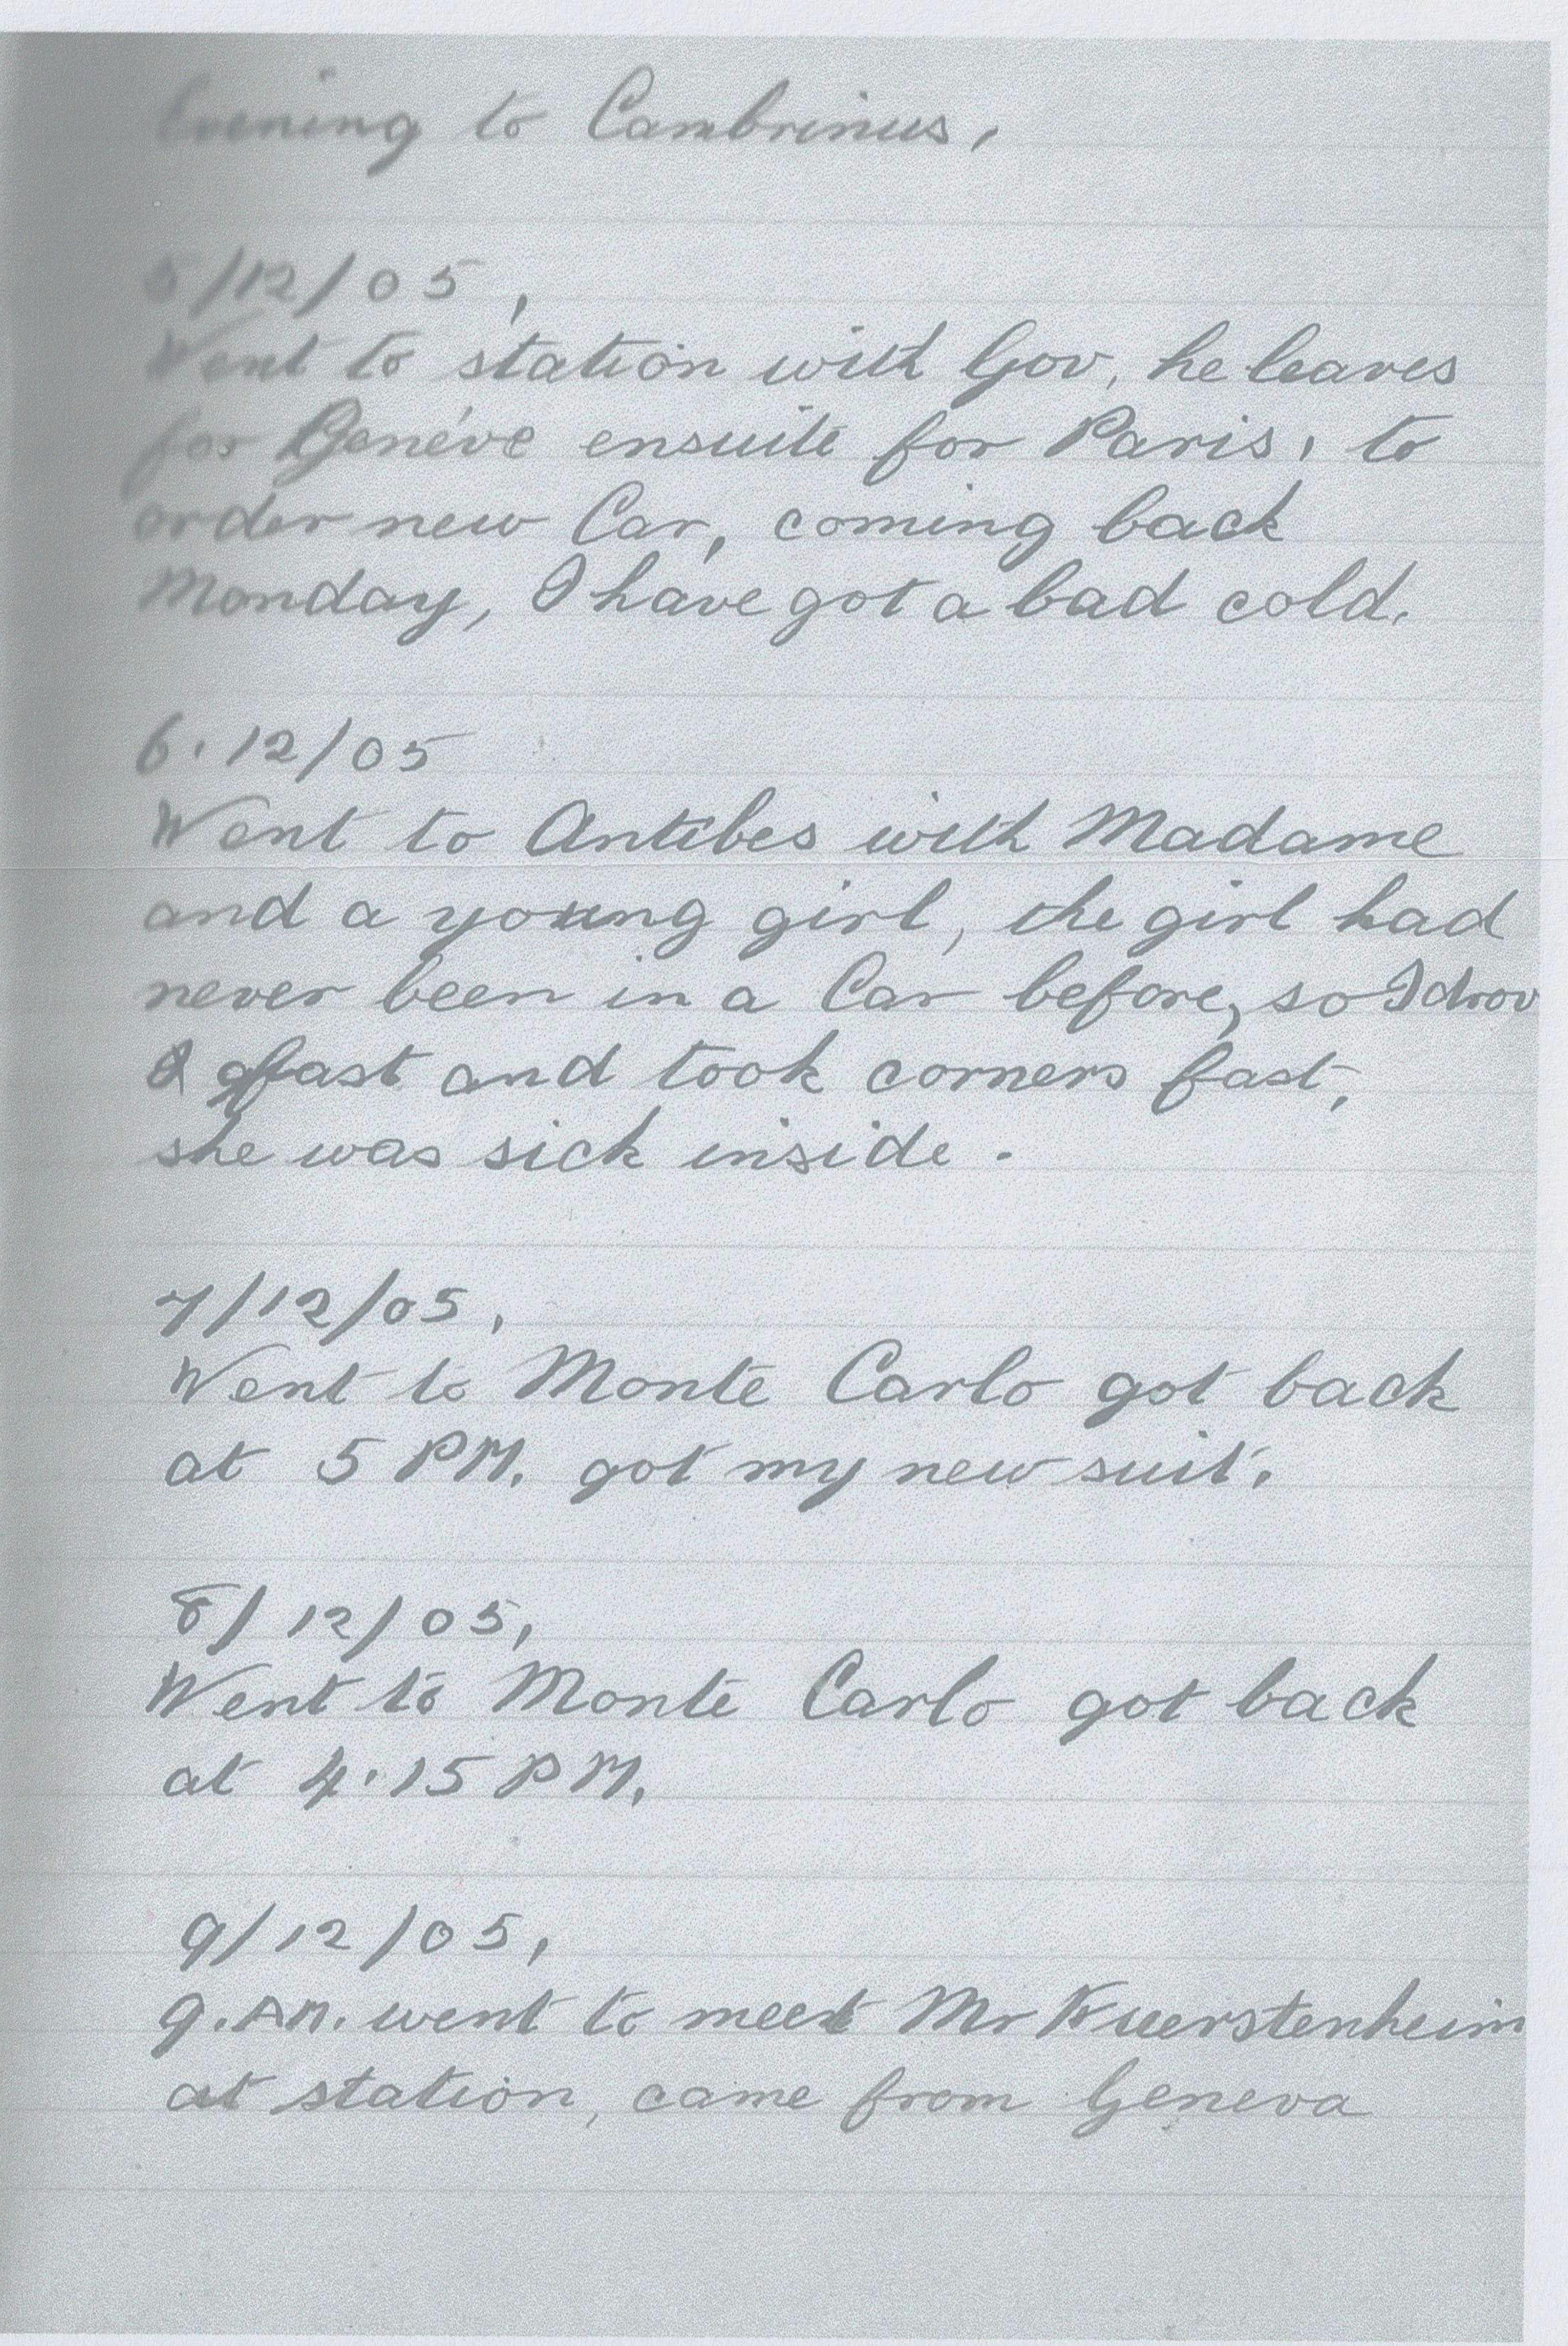 Evening to Cambrinus,
5/12/05,
Went to station with Gov, he leaves
for Genéve ensuite for Paris, to
order new Car, coming back
Monday, I have got a bad cold.
6.12/05
Went to Antibes with Madame
and a young girl, the girl had
never been in a Car before, so I drov
fast and took corners fast,
she was sick inside.
7/12/05,
Went to Monte Carlo got back
at 5 PM. got my new suit.
8/12/05,
Went to Monte Carlo got back
at 4.15 PM.
9/12/05,
9.AM. went to meet Mr Fuerstenheim
at station, came from Geneva